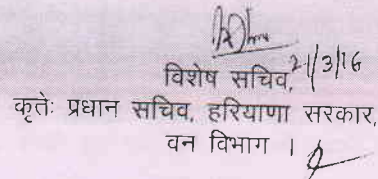 विशेष सचिव, 21/3/16
कृतेः प्रधान सचिव, हरियाणा सरकार,
वन विभाग ।